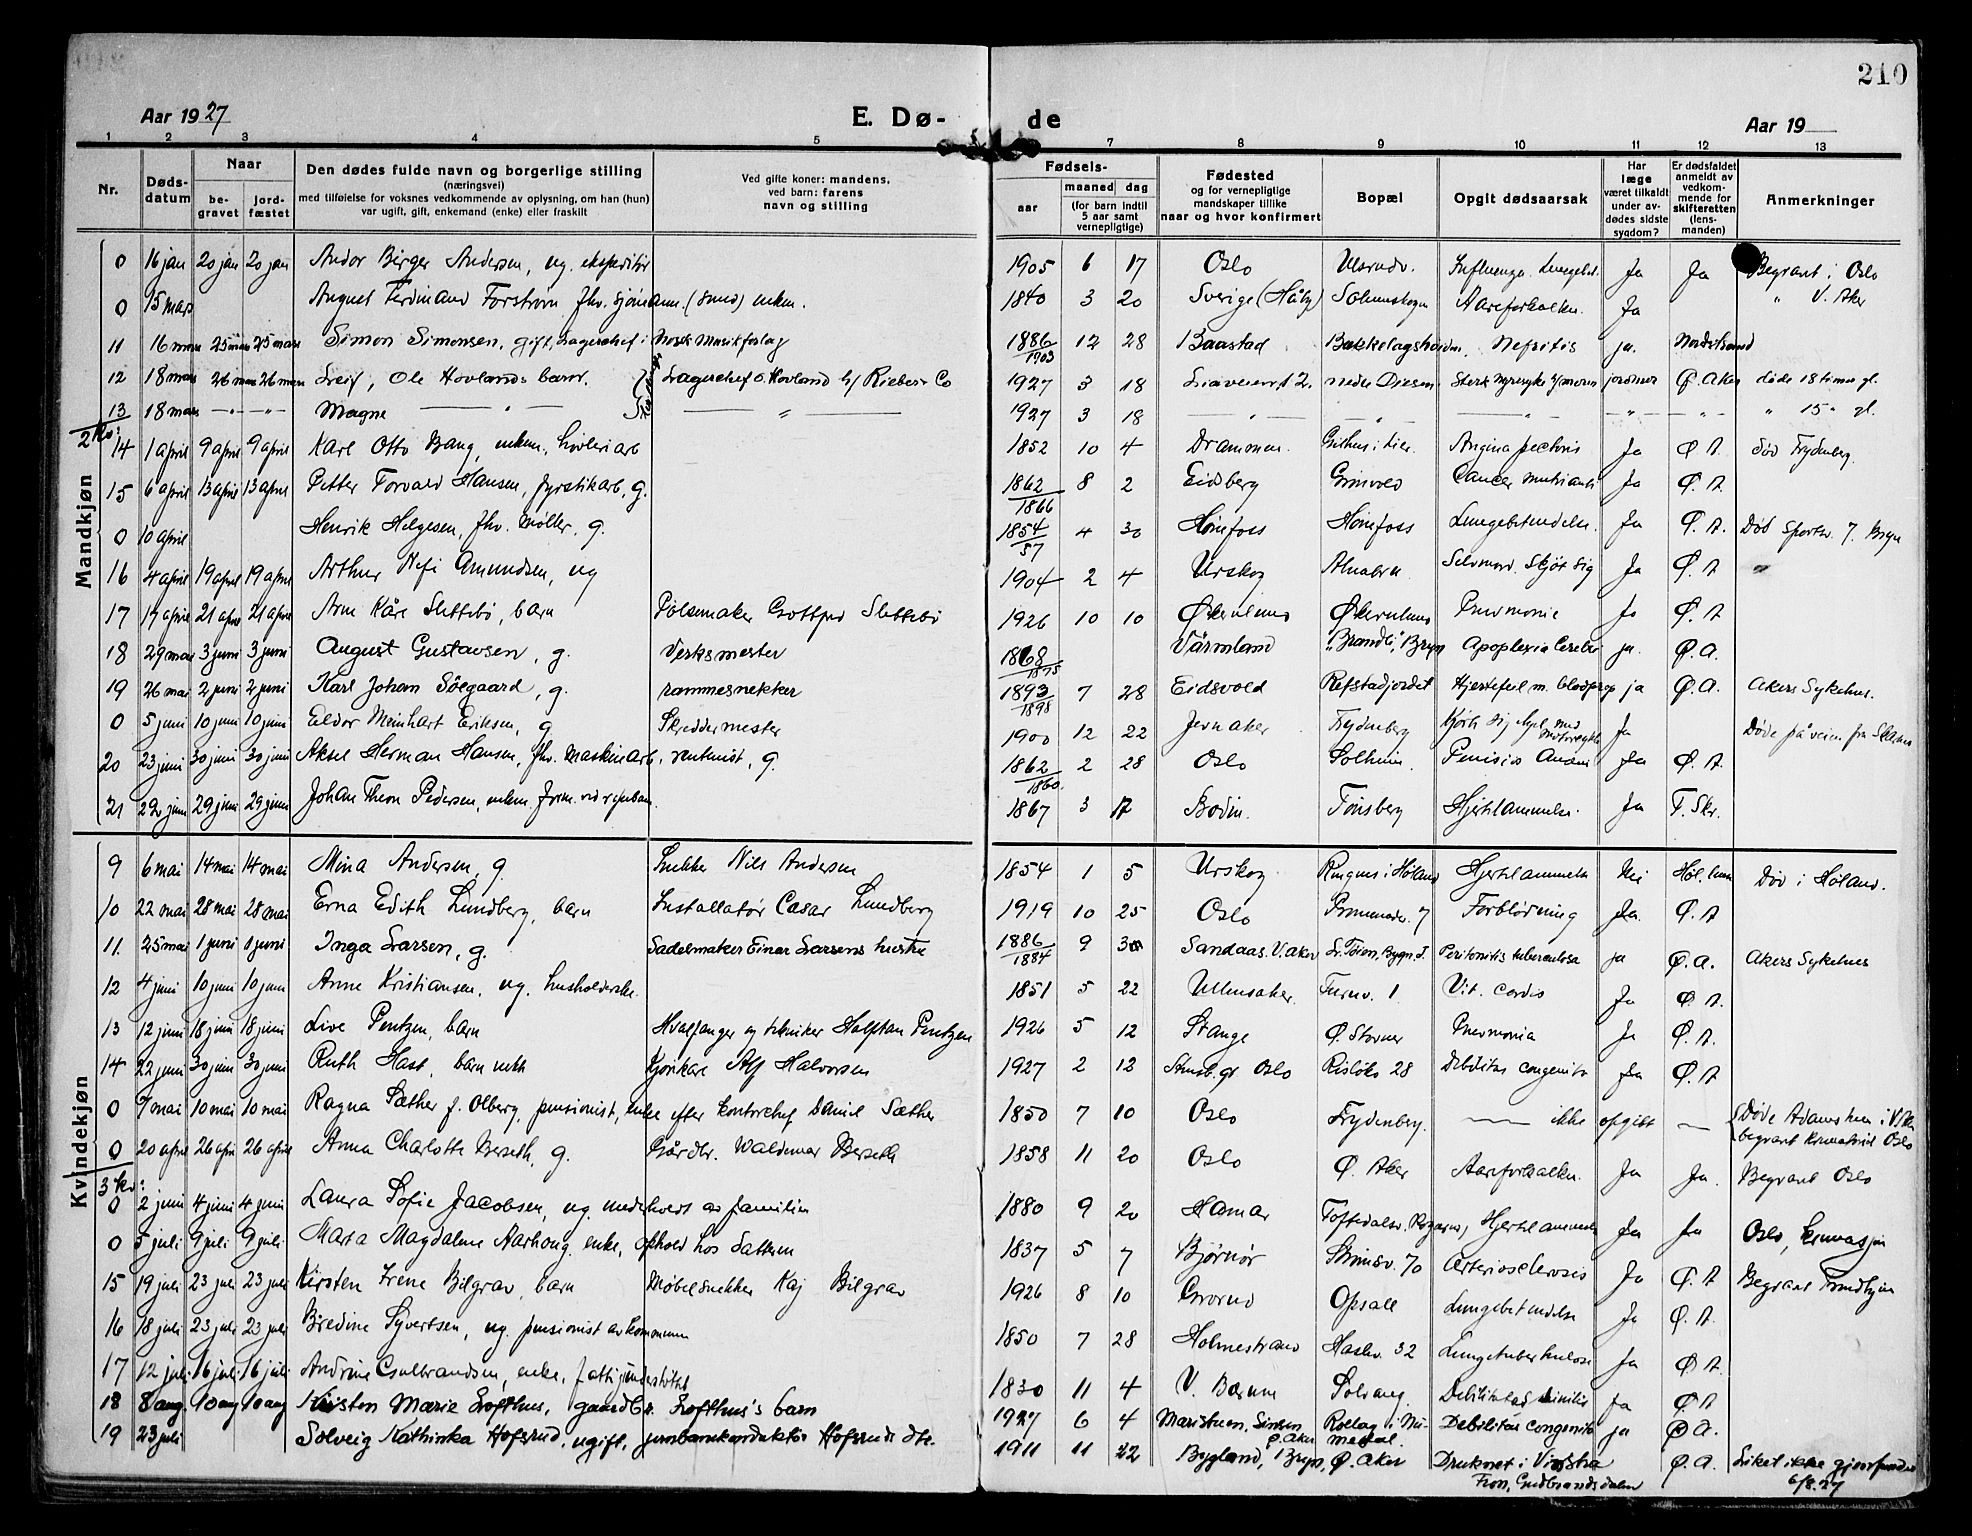 210
Aar 1927
E. Dø-
de
Aar 19
1 2 3 4 5 7 8 9 10 11 12 13
Nr.
Dødsdatum
Naar
begravet
jordfæstet
Den dødes fulde navn og borgerlige stilling
(næringsvei)
med tilføielse for voksnes vedkommende av oplysning, om han (hun)
var ugift, gift, enkemand (enke) eller fraskilt
Ved gifte koner: mandens,
ved barn: farens
navn og stilling
Fødsels-
aar
maaned
dag
(for barn indtil
5 aar samt
vernepligtige)
Fødested
og for vernepligtige
mandskaper tillike
naar og hvor konfirmert
Bopæl
Opgit dødsaarsak
Har
læge
været tilkaldt
under avdødes sidste
sygdom?
Er dødsfaldet
anmeldt av
vedkommende for
skifteretten
(lensmanden)
Anmerkninger
Mandkjøn
0 16 jan 20 jan 20 jan Andor Birger Andersen, ug. ekspeditør 1905 6 17 Oslo Influenza Ja Ja Begravt i Oslo
0 15 mars August Ferdinand Forstrøm fhv. sjømann. (svensk) enkem. 1840 3 20 Sverige Aareforkalkn. Ja " V. Aker
11 16 mars 25 mars 25 mars Simon Simonsen, gift, Lagerchef i Norsk Musikforlag 1886/1903 12 28 Baastad Bækkelagshøiden Nefritis ja. Nordstrand
12 18 mars 26 mars 26 mars Leif, Ole Hovlands barn. Lagerchef O. Hovland h/ Rieber & Co 1927 3 18 nedre Diesen Ø. Aker døde 18 timer gl.
13 18 mars —"— —"— Magne —"— —"— 1927 3 18 —"— —"— —"— —"— " 15 " gl.
14 1 april 9 april 9 april Karl Otto Bang, enkem., høvleriarb 1852 10 4 Drammen Gilhus i Lier Angina pectoris Ja Ø. A. død Frydenberg.
15 6 april 13 april 13 april Petter Torvald Hansen, fyrstikarb, g. 1862/1866 8 2 Eidsberg Grinvold Cancer Ja Ø. A.
0 10 april Henrik Helgesen, fhv. Møller, g. 1854/57 4 30 Hønefoss Hønefoss Lungebetændelse. Ja Ø. A. Død Sportsv. 7. Bryn
16 4 april 19 april 19 april Arthur Nefi Amundsen, ug 1904 2 4 Urskog Alnabru Selvmord. Skjøt sig Ja Ø. A "
17 17 april 21 april 21 april Arne Kåre Slettebø, barn Pølsemaker Gottfred Slettebø 1926 10 10 Økernlund Økernlund Pnevmonie Ja Ø. A.
18 29 mai 3 juni 3 juni August Gustavsen, g. Verksmester 1868/1875 Värmland "Brandli", Bryn Apoplexia Cerebri ja. Ø. A.
19 26 mai 2 juni 2 juni Karl Johan Söegaard, g. rammesnekker 1893/1898 7 28 Eidsvold Refstadjordet Hjertefeil m. blodprop ja Ø. A. Akers Sykehus.
0 5 juni 10 juni 10 juni Eldor Meinhart Eriksen, g Skreddermester 1900 12 22 Jevnaker Frydenberg Kjørte sig ihjel med motorcykle Ja Døde på veien fra
20 23 juni 30 juni 30 juni Aksel Herman Hansen, fhv. Maskinarb., rentenist, g. 1862/1860 2 28 Oslo Solheim. Ja Ø. A.
21 22 juni 29 juni 29 juni Johan Theon Pedersen, enkem. 1867 3 12 Bodin Tönsberg Hjertelammelse. Ja T. Skr.
Kvindekjøn
9 6 mai 14 mai 14 mai Mina Andersen, g. Snekker Nils Andersen 1854 1 5 Urskog Ringnes i Høland Hjertelammelse Nei Høl. Død i Høland.
10 22 mai 28 mai 28 mai Erna Edith Lundberg, barn Installatør Cæsar Lundberg 1919 10 25 Oslo Promenader. 7 Forblødning Ja. Ø. A
11. 25 mai 1 juni 1 juni Inga Larsen, g. Sadelmaker Einar Larsens hustru 1886/1884 9 30 Sandaas. V. Aker L. Töien, Bygn. I. Peritonitis tuberculosa ja Ø. A. Akers Sykehus
12 4 juni 10 juni 10 juni Anne Kristiansen, ug. husholderske. 1851 5 22 Ullensaker. Furuv. 1 Vit. cordis Ja Ø. A.
13 12 juni 18 juni 18 juni Live Pentzen, barn Hvalfanger og tekniker Halfdan Pentzen 1926 5 12 Stange Ø. Stovner Pnevmonia Ja Ø. A.
14 22 juni 30 juni 30 juni Ruth Hast, barn uekte Kjørekar Alf Halvorsen 1927 2 12 Oslo Risløkv 28 Debilitas congenita Ja Ø. A
0 7 mai 10 mai 10 mai Ragna Sæther f. Olberg, pensionist, enke efter kontorchef Daniel Sæther 1850 7 10 Oslo Frydenberg. — ikke opgitt — Døde begravt krematoriet Oslo
0 20 april 26 april 26 april Anna Charlotte Berseth, g. Gårdbr. Waldemar Berseth 1858 11 20 Oslo Ø. Aker Aareforkalkn. Ja Ja. Begravt Oslo
0 2 juni 4 juni 4 juni Laura Sofie Jacobsen, ug. underholdt av familien 1880 9 20 Hamar Hjertelammelse Ja Ja Oslo, kremasjon
0 5 juli 9 juli 9 juli Marta Magdalene Aarhoug. enke, ophold hos datteren 1837 5 7 Bjørnør Strømsv. 70 Arteriosclerosis Ja Ø. A Begravt Trondhjem
15 19 juli 23 juli 23 juli Kirsten Irene Bilgrav, barn Møbelsnekker Kaj Bilgrav 1926 8 10 Grorud Opsall Lungebetendelse Ja Ø. A.
16 18 juli 23 juli 23 juli Bredine Syvertsen, ug. pensionist av kommunen 1850 7 28 Holmestrand Haslev. 32 Lungetuberkulose Ja Ø A
17 12 juli 16 juli 16 juli Andrine Gulbrandsen, enke, fattigunderstøttet 1830 11 4 V. Bærum Solvang Debilitas senilis Ja Ø A
18 8 aug. 10 aug 10 aug Kirsten Marie Lofthus, gaardbr. Lofthus's barn 1927 6 4 Maristuen, Sinsen Ø. Aker Rollag i Numedal. Debilitas congenita ja Ø A.
19 23 juli Solveig Kathinka Hofsrud, ugift, jernbanekonduktør Hofsruds dtr. 1911 11 22 Bygland, Bryn, Ø. Aker Druknet i Vinstra Fron, Gudbrandsdalen Ø. A. Liket ikke gjenfundet 6/8. 27